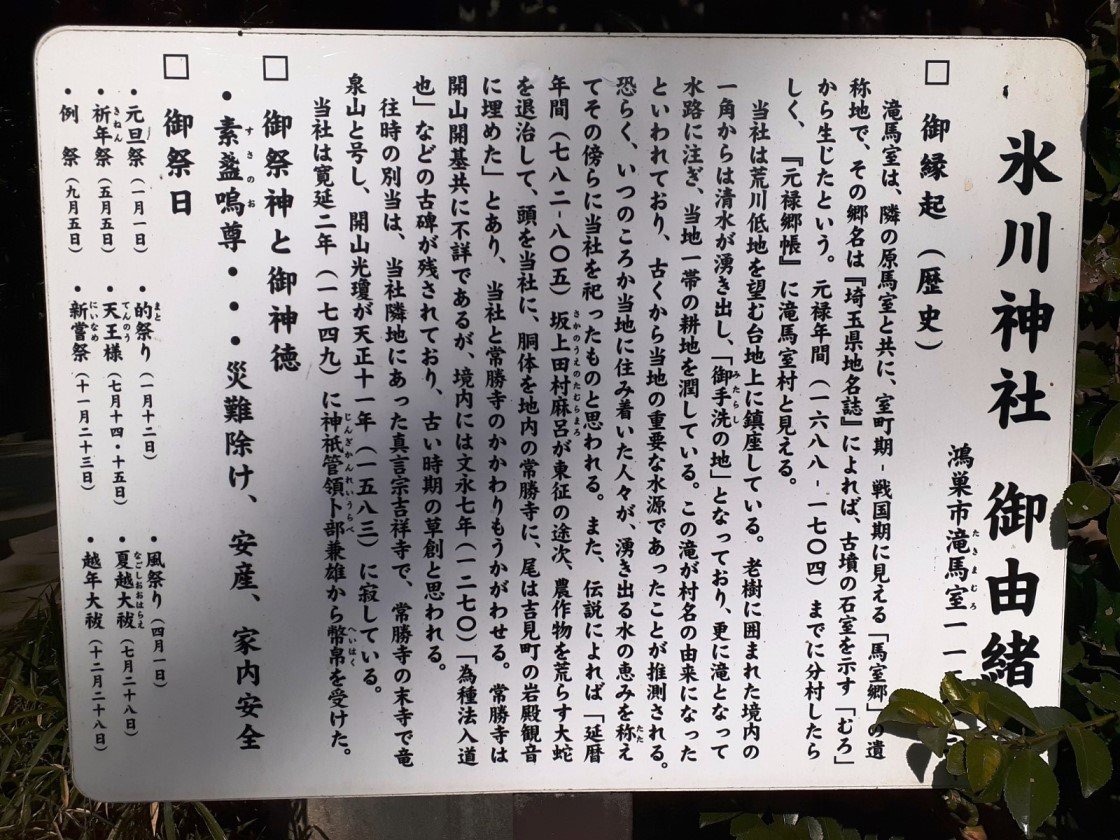 氷川神社 御由緒
鴻巣市滝馬室一一
□ 御縁起（歴史）
滝馬室は、隣の原馬室と共に、室町期-戦国期に見える「馬室郷」の遺
称地で、その郷名は『埼玉県地名誌』によれば、古墳の石室を示す「むろ」
から生じたという。元禄年間（一六八八-一七〇四）までに分村したら
しく、『元禄郷帳』に滝馬室村と見える。
当社は荒川低地を望む台地上に鎮座している。老樹に囲まれた境内の
一角からは清水が湧き出し、「御手洗の地」となっており、更に滝となって
水路に注ぎ、当地一帯の耕地を潤している。この滝が村名の由来になった
といわれており、古くから当地の重要な水源であったことが推測される。
恐らく、いつのころか当地に住み着いた人々が、湧き出る水の恵みを称え
てその傍らに当社を祀ったものと思われる。また、伝説によれば「延暦
年間（七八二-八〇五）坂上田村麻呂が東征の途次、農作物を荒らす大蛇
を退治して、頭を当社に、胴体を地内の常勝寺に、尾は吉見町の岩殿観音
に埋めた」とあり、当社と常勝寺のかかわりもうかがわせる。常勝寺は
開山開基共に不詳であるが、境内には文永七年（一二七〇）「為種法入道
也」などの古碑が残されており、古い時期の草創と思われる。
往時の別当は、当社隣地にあった真言宗吉祥寺で、常勝寺の末寺で竜
泉山と号し、開山光瓊が天正十一年（一五八三）に寂している。
当社は寛延二年（一七四九）に神祇管領卜部兼雄から幣帛を受けた。
□ 御祭神と御神徳
・素盞嗚尊・・・災難除け、安産、家内安全
□ 御祭日
・元旦祭（一月一日） ・的祭り（一月十二日） ・風祭り（四月一日）
・祈年祭（五月五日） ・天王様（七月十四・十五日） ・夏越大祓（七月二十八日）
・例　祭（九月五日） ・新嘗祭（十一月二十三日） ・越年大祓（十二月二十八日）